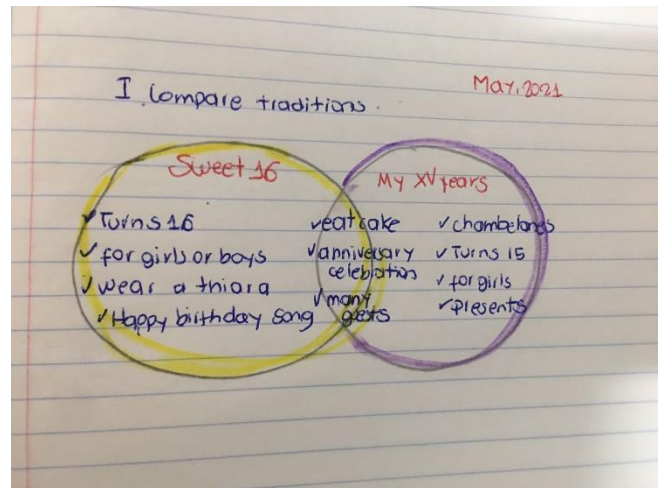 May, 2021
I compare traditions.
Sweet 16
✓ Turns 16
✓ for girls or boys
✓ wear a thiara
✓ Happy birthday song
✓ eat cake
✓ anniversary
celebration
✓ many
gests
My XV years
✓ chambelanes
✓ Turns 15
✓ for girls
✓ presents